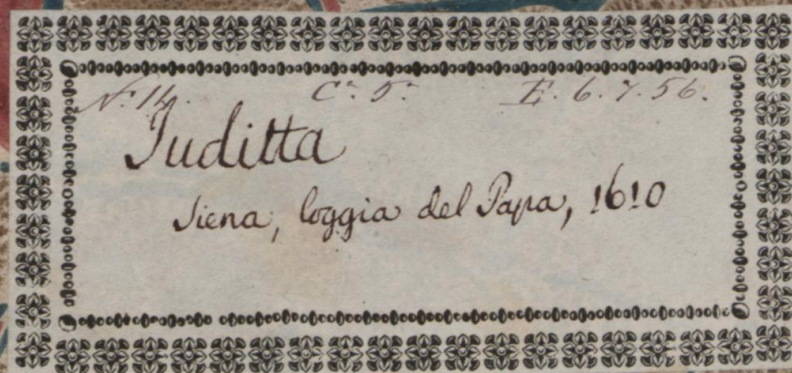 N.° 14. C.° 5.° E. 6. 7. 56.
Juditta
Siena, loggia del Papa, 1610